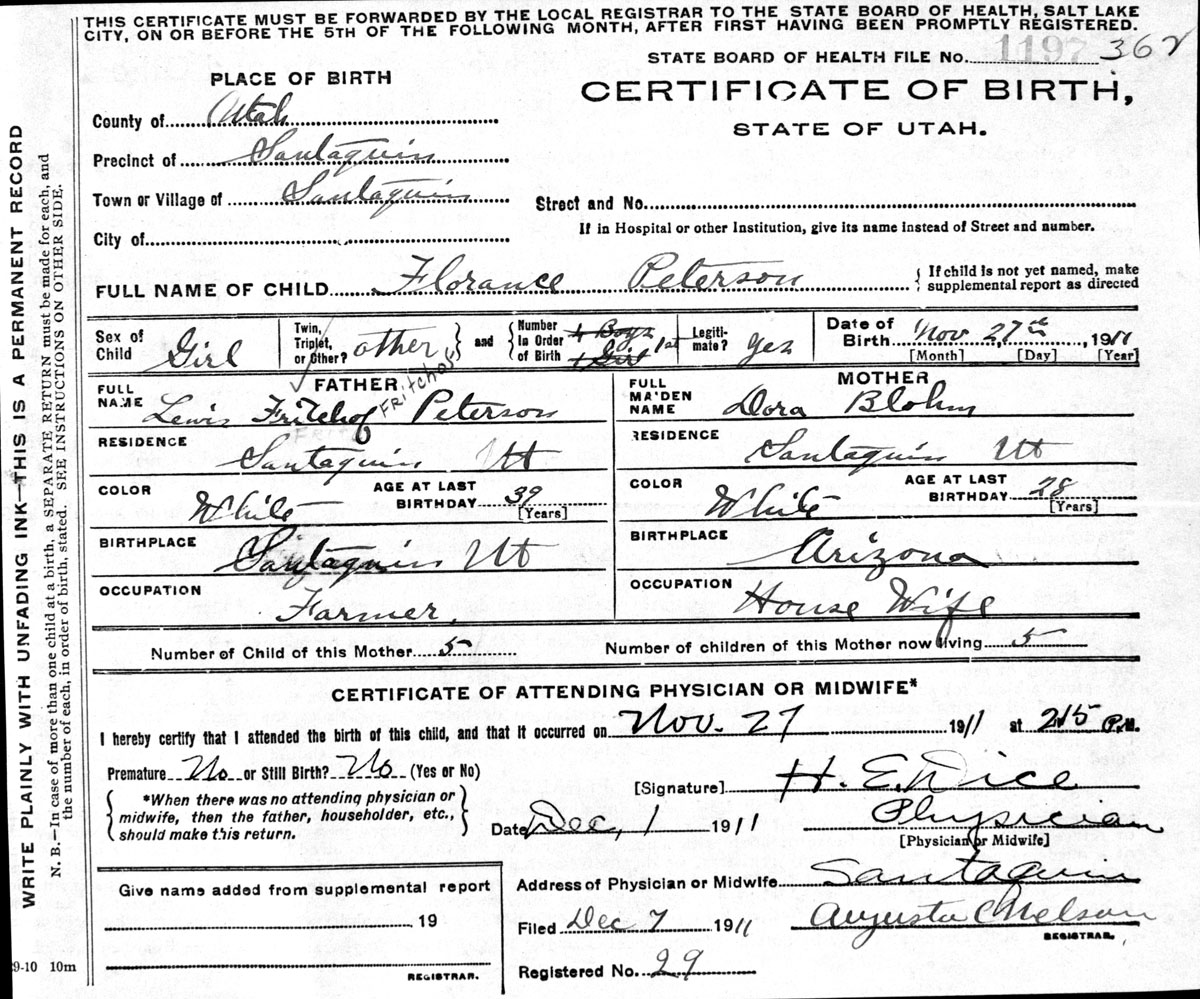 THIS CERTIFICATE MUST BE FORWARDED BY THE LOCAL REGISTRAR TO THE STATE BOARD OF HEALTH, SALT LAKE
CITY, ON OR BEFORE THE 5TH OF THE FOLLOWING MONTH, AFTER FIRST HAVING BEEN PROMPTLY REGISTERED.
STATE BOARD OF HEALTH FILE No. 1197 362
PLACE OF BIRTH
CERTIFICATE OF BIRTH,
STATE OF UTAH.
County of Utah
Precinct of Santaquin
Town or Village of Santaquin
Street and No.
City of
If in Hospital or other Institution, give its name instead of Street and number.
FULL NAME OF CHILD Florance Peterson
If child is not yet named, make
supplemental report as directed
Sex of Child Girl
Twin, Triplet, or Other? other
and
Number In Order of Birth 4 Boys 1 Girl 1st
Legitimate? yes
Date of Birth Nov 27th, 1911
[Month] [Day] [Year]
FATHER
FULL NAME Lewis Fritchof Fritchof Peterson
MOTHER
FULL MAIDEN NAME Dora Blohm
RESIDENCE Santaquin Ut
RESIDENCE Santaquin Ut
COLOR White AGE AT LAST BIRTHDAY 39 [Years]
COLOR White AGE AT LAST BIRTHDAY 28 [Years]
BIRTHPLACE Santaquin Ut
BIRTHPLACE Arizona
OCCUPATION Farmer.
OCCUPATION House Wife
Number of Child of this Mother 5 Number of children of this Mother now living 5
CERTIFICATE OF ATTENDING PHYSICIAN OR MIDWIFE*
I hereby certify that I attended the birth of this child, and that it occurred on Nov. 27 1911 at 215 P.M.
Premature No or Still Birth? No (Yes or No)
[Signature] H. E. Dice
*When there was no attending physician or
midwife, then the father, householder, etc.,
should make this return.
Date Dec, 1 1911
Physician
[Physician or Midwife]
Address of Physician or Midwife Santaquin
Give name added from supplemental report
19
REGISTRAR.
Filed Dec 7 1911 Augusta C Nelson
REGISTRAR.
Registered No. 29
9-10 10m
WRITE PLAINLY WITH UNFADING INK—THIS IS A PERMANENT RECORD
N. B.—In case of more than one child at a birth, a SEPARATE RETURN must be made for each, and
the number of each, in order of birth, stated. SEE INSTRUCTIONS ON OTHER SIDE.